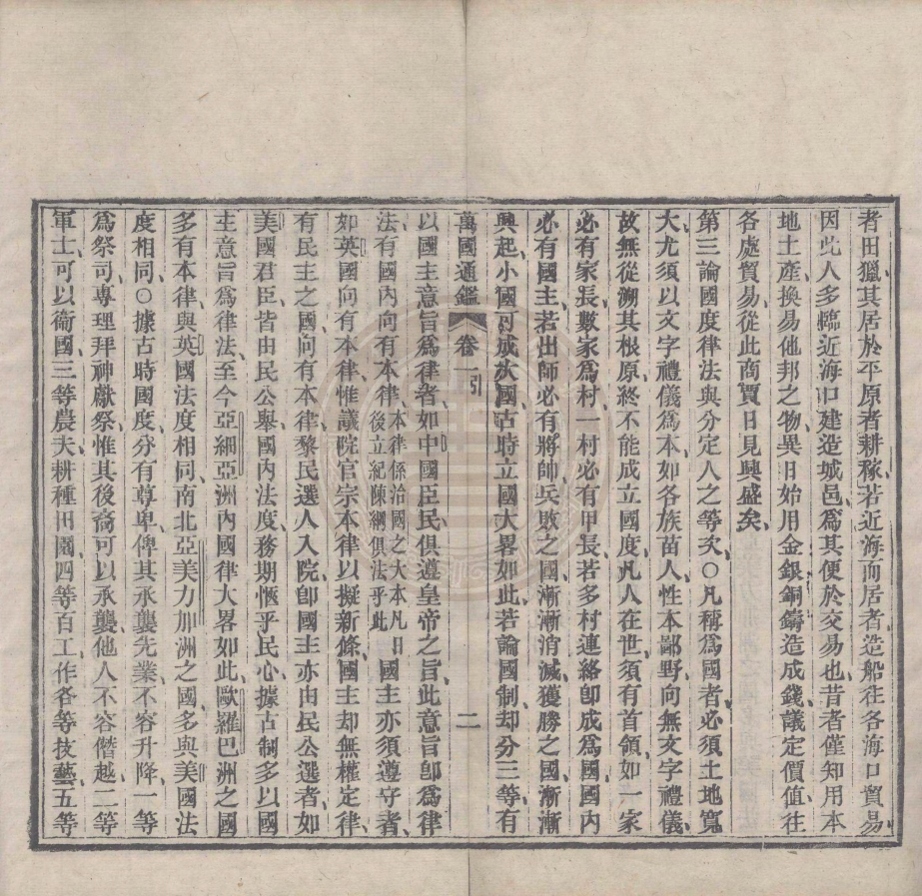 者田獵、其居於平原者耕稼、若近海而居者、造船在各海口貿易、
因此人多臨近海口建造城邑、爲其便於交易也、昔者僅知用本
地土產、換易他邦之物、異日始用金銀銅鑄造成錢、議定價值、往
各處貿易、從此商賈日見興盛矣、
第三論國度律法與分定人之等次、○凡稱爲國者、必須土地寬
大、尤須以文字禮儀爲本、如各族苗人、性本鄙野、向無文字禮儀、
故無從溯其根原、終不能成立國度、凡人在世、須有首領、如一家
必有家長、數家爲村、一村必有甲長、若多村連絡、卽成爲國、國內
必有國主、若出師必有將帥、兵敗之國、漸漸消滅、獲勝之國、漸漸
興起、小國可成大國、古時立國大畧如此、若論國制、却分三等、有
萬國通鑑 卷一 引 二
以國主意旨爲律者、如中國臣民、俱遵皇帝之旨、此意旨卽爲律
法、有國內向有本律、本律係治國之大本凡日後立紀陳綱俱法乎此國主亦須遵守者、
如英國向有本律、惟議院官宗本律以擬新條、國主却無權定律、
有民主之國、向有本律、黎民選人入院、卽國主亦由民公選者、如
美國君臣、皆由民公舉、國內法度、務期愜乎民心、據古制多以國
主意旨爲律法、至今亞細亞洲內國律大畧如此、歐羅巴洲之國
多有本律、與英國法度相同、南北亞美力加洲之國、多與美國法
度相同、○據古時國度、分有尊卑、俾其承襲先業、不容升降、一等
爲祭司、專理拜神獻祭、惟其後裔可以承襲、他人不容僭越、二等
軍士、可以衞國、三等農夫、耕種田園、四等百工、作各等技藝、五等